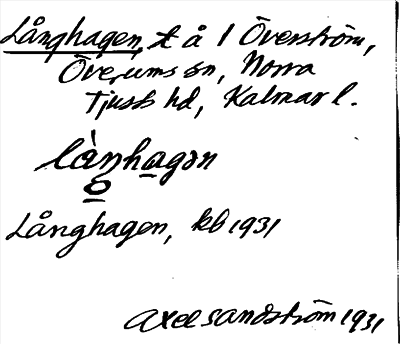 Långhagen, t å 1 Överström,
Överums sn, Norra
Tjusts hd, Kalmar l.
làŋhagən
o
Långhagen, kb 1931
Axel Sandström 1931